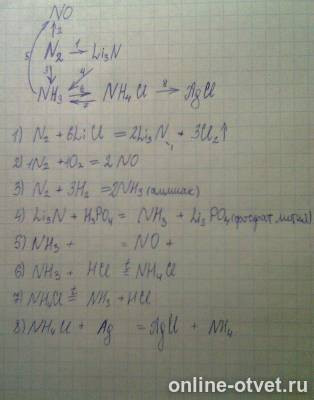 NO
5 ↑2
N₂ 1→ Li₃N
3↓ 4
NH₃ 6⇄7 NH₄Cl 8→ AgCl
1) N₂ + 6LiCl = 2Li₃N + 3Cl₂↑
2) 1N₂ + 1O₂ = 2NO
3) N₂ + 3H₂ = 2NH₃ (аммиак)
4) Li₃N + H₃PO₄ = NH₃ + Li₃PO₄ (фосфат лития)
5) NH₃ + = NO +
6) NH₃ + HCl ⇄ NH₄Cl
7) NH₄Cl t= NH₃ + HCl
8) NH₄Cl + Ag = AgCl + NH₄
online-otvet.ru